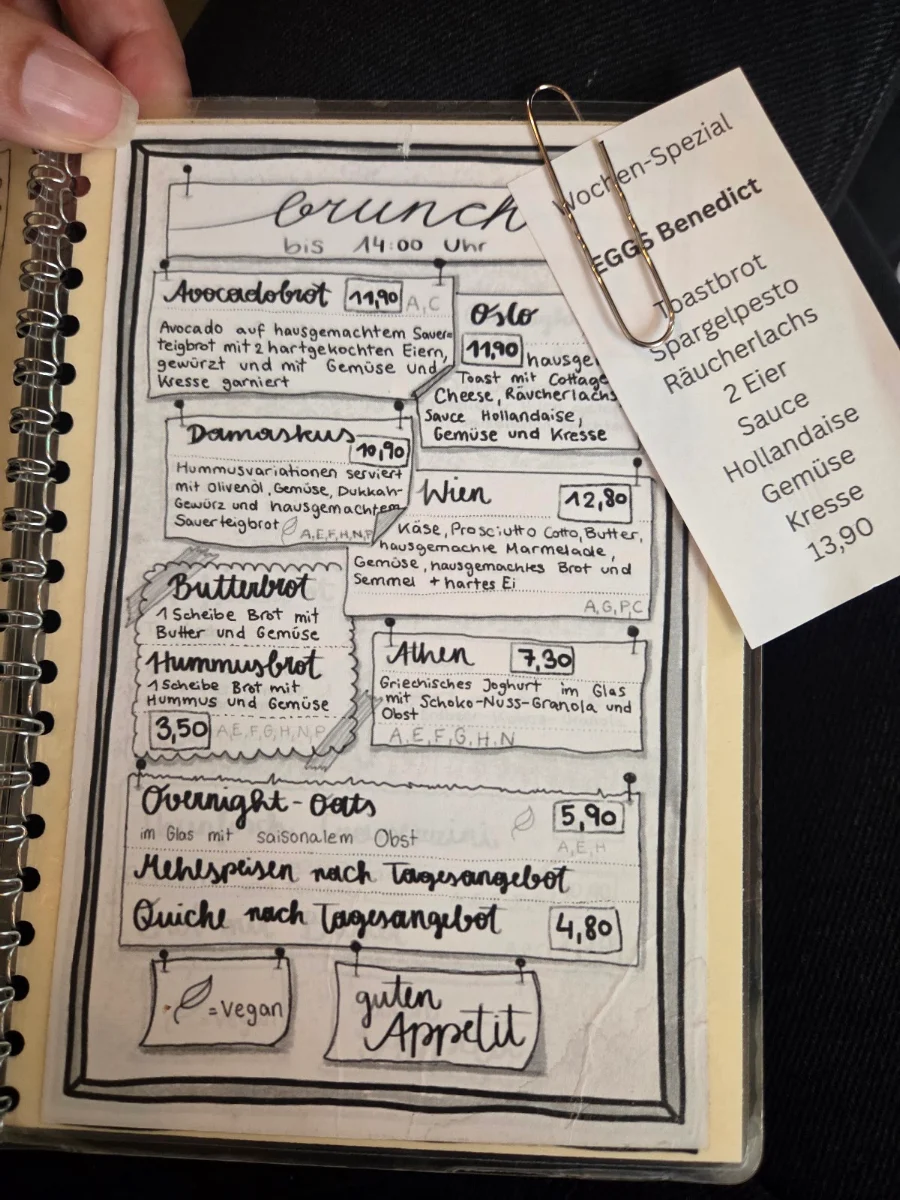 brunch
bis 14:00 Uhr
Avocadobrot 11,90 A,C
Avocado auf hausgemachtem Sauer=
teigbrot mit 2 hartgekochten Eiern,
gewürzt und mit Gemüse und
Kresse garniert
Oslo
11,90
Toast mit Cottage
Cheese, Räucherlachs
Sauce Hollandaise,
Gemüse und Kresse
Damaskus 10,90
Hummusvariationen serviert
mit Olivenöl, Gemüse, Dukkah-
Gewürz und hausgemachtem
Sauerteigbrot A,E,F,H,N,P
Wien 12,80
Käse, Prosciutto Cotto, Butter,
hausgemachte Marmelade,
Gemüse, hausgemachtes Brot und
Semmel + hartes Ei
A,G,P,C
Butterbrot
1 Scheibe Brot mit
Butter und Gemüse
Hummusbrot
1 Scheibe Brot mit
Hummus und Gemüse
3,50 A,E,F,G,H,N,P
Athen 7,30
Griechisches Joghurt im Glas
mit Schoko-Nuss-Granola und
Obst
A,E,F,G,H,N
Overnight-Oats 5,90
im Glas mit saisonalem Obst A,E,H
Mehlspeisen nach Tagesangebot
Quiche nach Tagesangebot 4,80
=vegan
guten
Appetit
Wochen-Spezial
EGGS Benedict
Toastbrot
Spargelpesto
Räucherlachs
2 Eier
Sauce
Hollandaise
Gemüse
Kresse
13,90